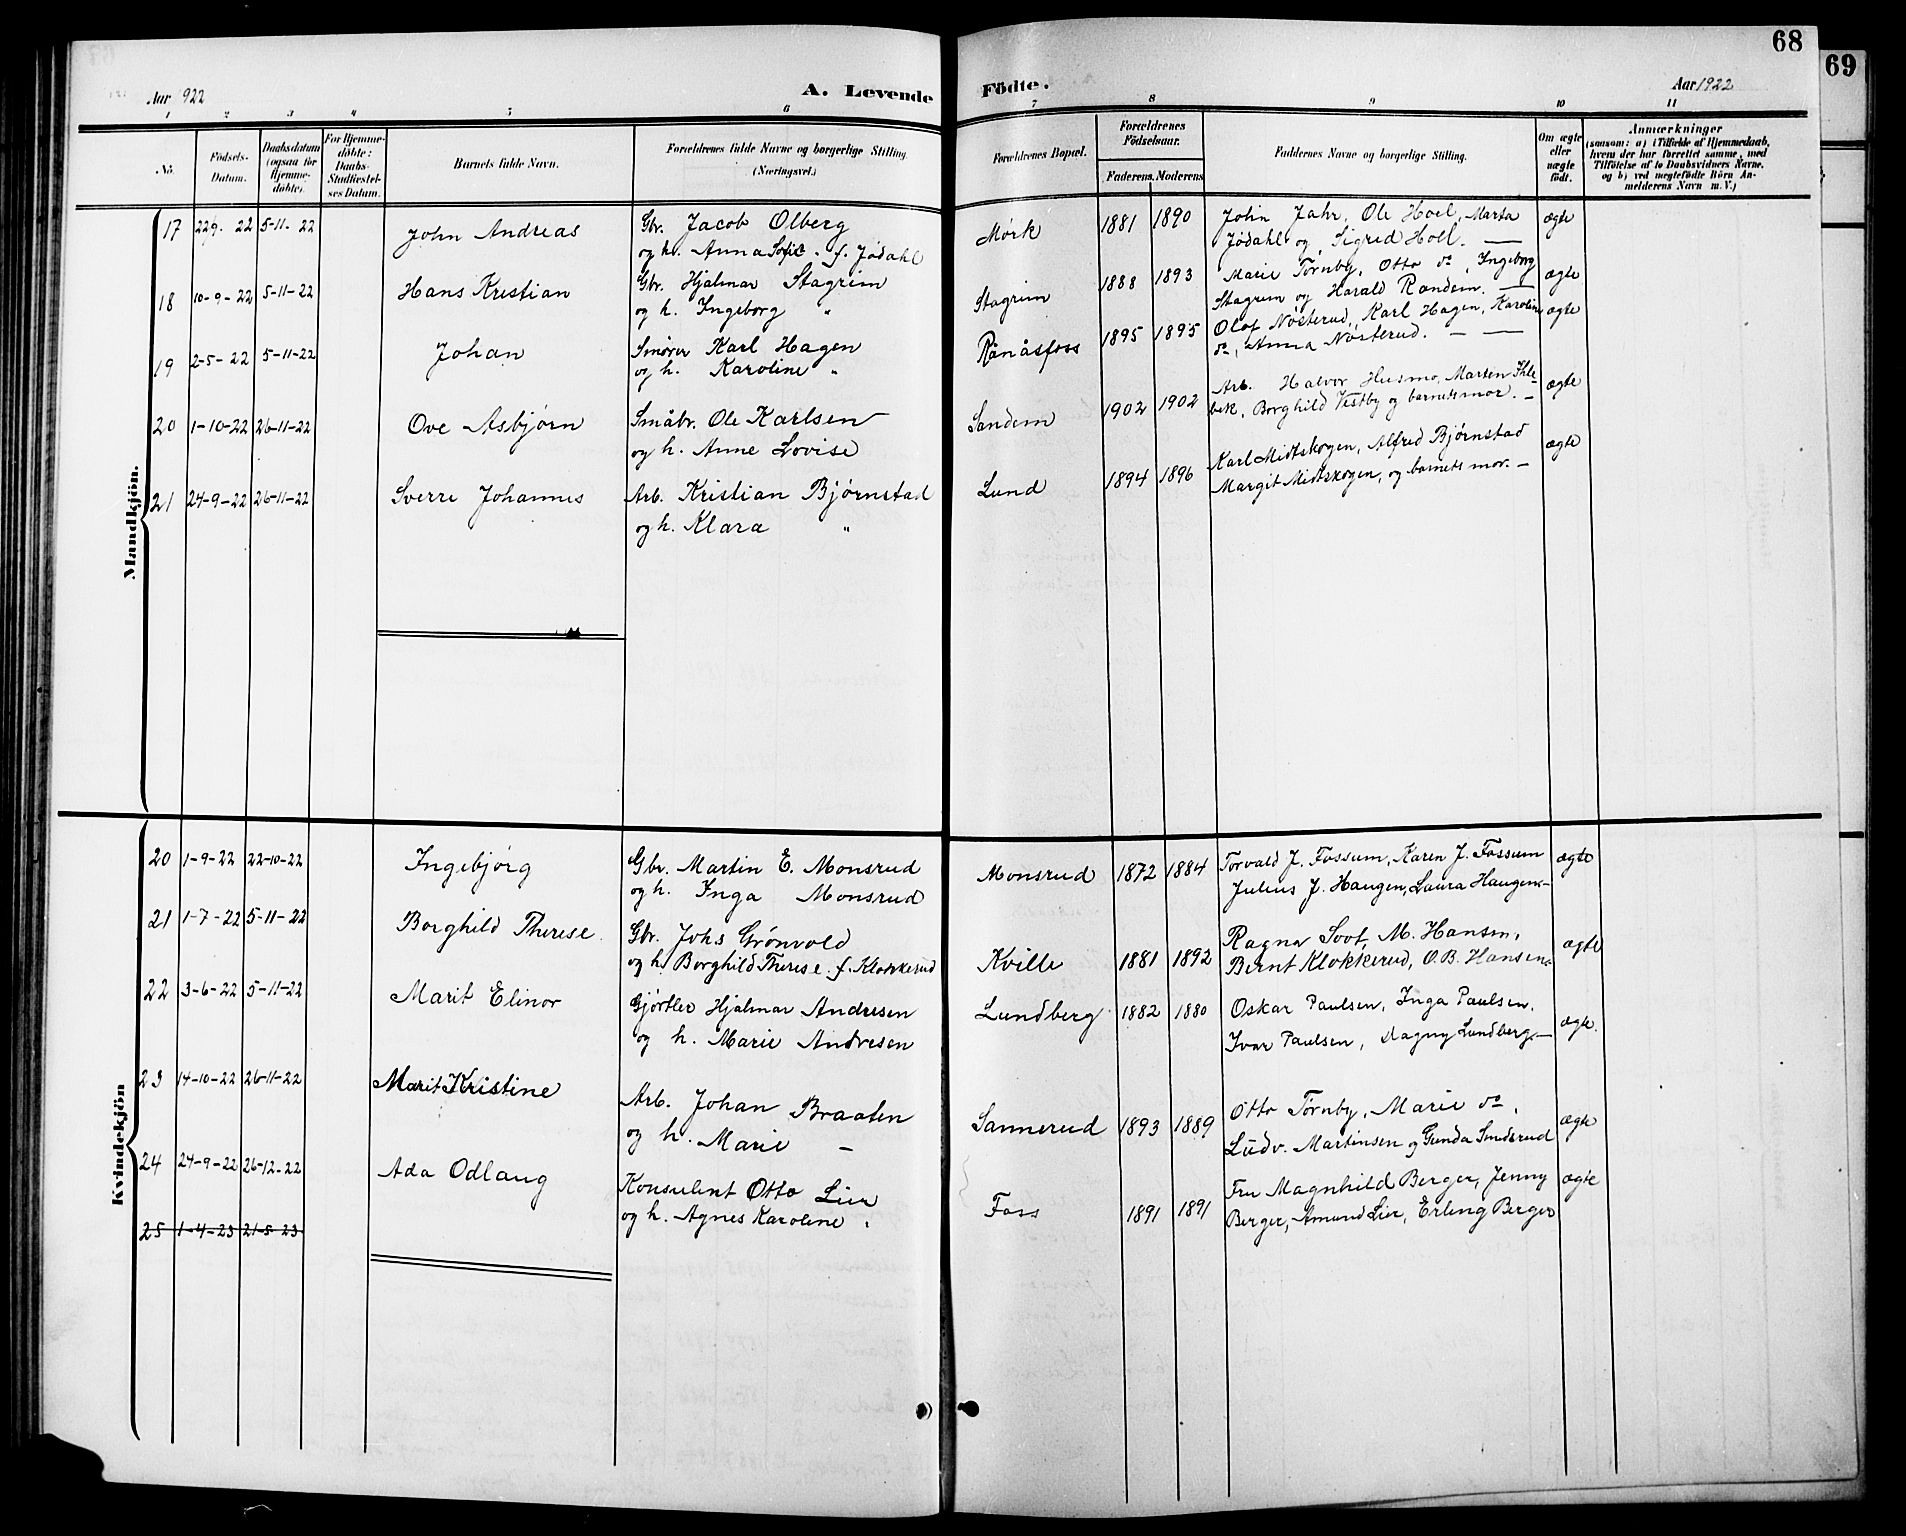 68
69
Aar 1922
A. Levende Födte.
Aar 1922
1 2 3 4 5 6 7 8 9 10 11
No.
Födsels-Datum.
Daabsdatum (ogsaa for Hjemme-döbte).
For Hjemme-döbte: Daabs-Stadfæstel-ses Datum.
Barnets fulde Navn.
Forældrenes fulde Navne og borgerlige Stilling
(Næringsvei.)
Forældrenes Bopæl.
Forældrenes Födselsaar.
Faderens. Moderens
Faddernes Navne og borgerlige Stilling.
Om ægte eller uægte födt.
Anmærkninger
(saasom: a) i Tilfælde af Hjemmedaab,
hvem der har forrettet samme, med
Tilföielse af to Daabsvidners Navne,
og b) ved uægtefödte Börn An-
melderens Navn m. V.)
Mandkjön.
17 22-9-22 5-11-22 John Andreas Gbr. Jacob Olberg Mørk 1881 1890 John Jahr, Ole Hoel, Marta ægte
og h. Anna Sofie f. Jødahl Jødahl og Sigrid Hoel. —
18 10-9-22 5-11-22 Hans Kristian Gbr. Hjalmar Stagrim Stagrim 1888 1893 Marie Tørnby, Otto do, Ingeborg ægte
og h. Ingeborg " Stagrim og Harald Randem. —
19 2-5-22 5-11-22 Johan Smører Karl Hagen Rånåsfoss 1895 1895 Olaf Nösterud, Karl Hagen, Karoline ægte
og h. Karoline " do, Anna Nösterud. — —
20 1-10-22 26-11-22 Ove Asbjørn Småbr. Ole Karlsen Sandem 1902 1902 Arb. Halvor Husmo, Marten Ihle- ægte
og h. Anne Lovise bek, Borghild Vestby og barnets mor. —
21 24-9-22 26-11-22 Sverre Johannes Arb. Kristian Bjørnstad Lund 1894 1896 Karl Midtskogen, Alfred Bjørnstad ægte
og h. Klara " Margit Midtskogen, og barnets mor. —
Kvindekjön
20 1-9-22 22-10-22 Ingebjørg Gbr. Martin E. Monsrud Monsrud 1872 1884 Torvald J. Fossum, Karen J. Fossum ægte
og h. Inga Monsrud Julius J. Haugen, Laura Haugen. —
21 1-7-22 5-11-22 Borghild Therese Gbr. Johs Grønvold Kville 1881 1892 Ragna Soot, M. Hansen, ægte
og h. Borghild Therese f. Klokkerud Bernt Klokkerud, O.B. Hansen. —
22 3-6-22 5-11-22 Marit Elinor Gjørtler Hjalmar Andresen Lundberg 1882 1880 Oskar Paulsen, Inga Paulsen, ægte.
og h. Marie Andresen Ivar Paulsen, Dagny Lundberg. —
23 14-10-22 26-11-22 Marit Kristine Arb. Johan Braaten Sannerud 1893 1889 Otto Tørnby, Marie do, ægte
og h. Marie — Ludv. Martinsen og Gunda Smdsrud
24 24-9-22 26-12-22 Ada Odlaug Konsulent Otto Lier Foss 1891 1891 Fru Magnhild Berger, Jenny ægte
og h. Agnes Karoline " Berger, Amund Lier, Erling Berger
25 1-4-23 21-5-23